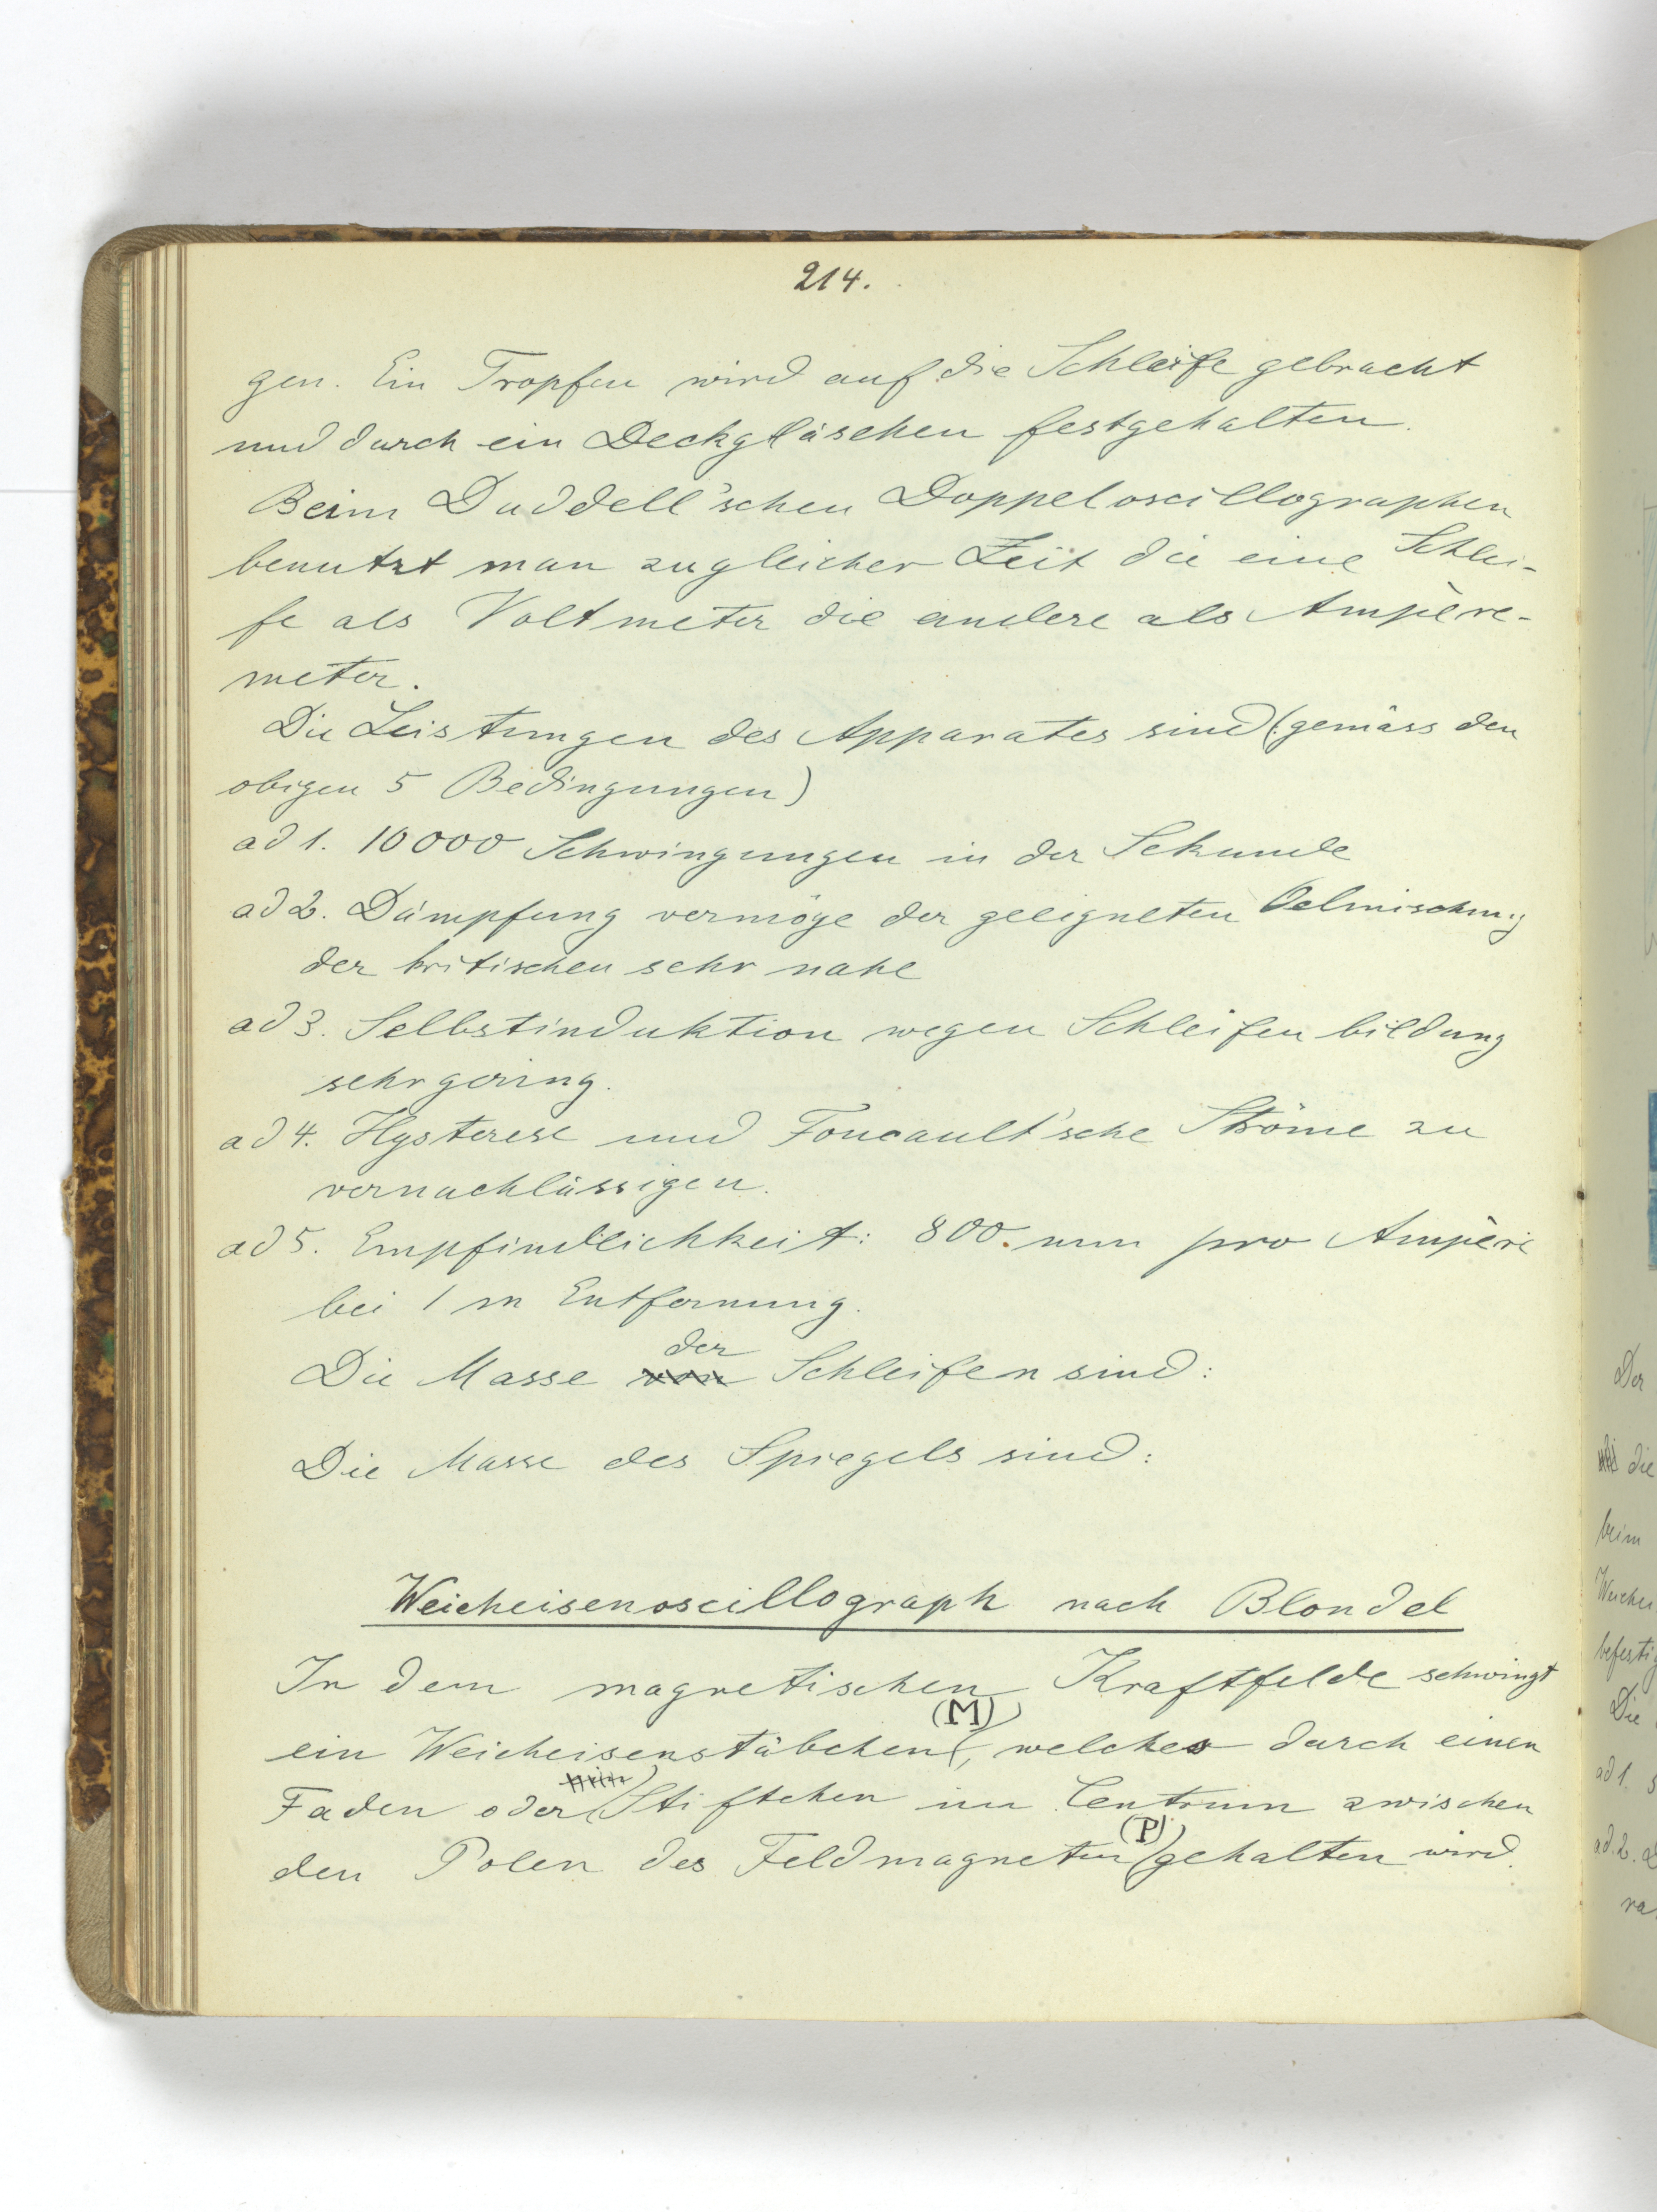 214.
gen. Ein Tropfen wird auf die Schleife gebracht
und durch ein Deckgläschen festgehalten.
Beim Duddell'schen Doppeloscillographen
benutzt man zugleicher Zeit die eine Schlei-
fe als Voltmeter die andere als Ampère-
meter.
Die Leistungen des Apparates sind (gemäss den
obigen 5 Bedingungen)
ad 1. 10000 Schwingungen in der Sekunde
ad 2. Dämpfung vermöge der geeigneten Oelmischung
der kritischen sehr nahe
ad 3. Selbstinduktion wegen Schleifenbildung
sehr gering.
ad 4. Hysterese und Foucault'sche Ströme zu
vernachlässigen.
ad 5. Empfindlichkeit: 800. mm pro Ampère
bei 1 m Entfernung.
der
Die Masse von Schleifen sind:
Die Masse des Spiegels sind:
Weicheisenoscillograph nach Blondel
In dem magnetischen Kraftfelde schwingt
(M)
ein Weicheisenstäbchen, welches durch einen
Faden oder Stiftchen im Centrum zwischen
(P)
den Polen des Feldmagneten gehalten wird.
Der
die
beim
Weichei
befestig
Die
ad 1. s
ad. 2. D